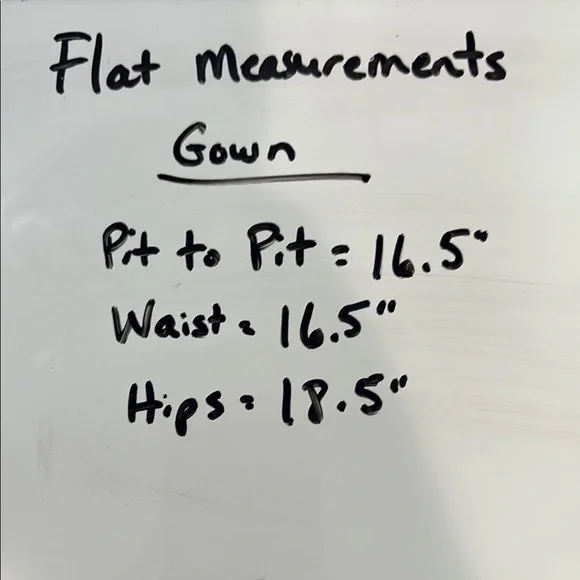 Flat Measurements
Gown
Pit to Pit = 16.5"
Waist = 16.5"
Hips = 18.5"